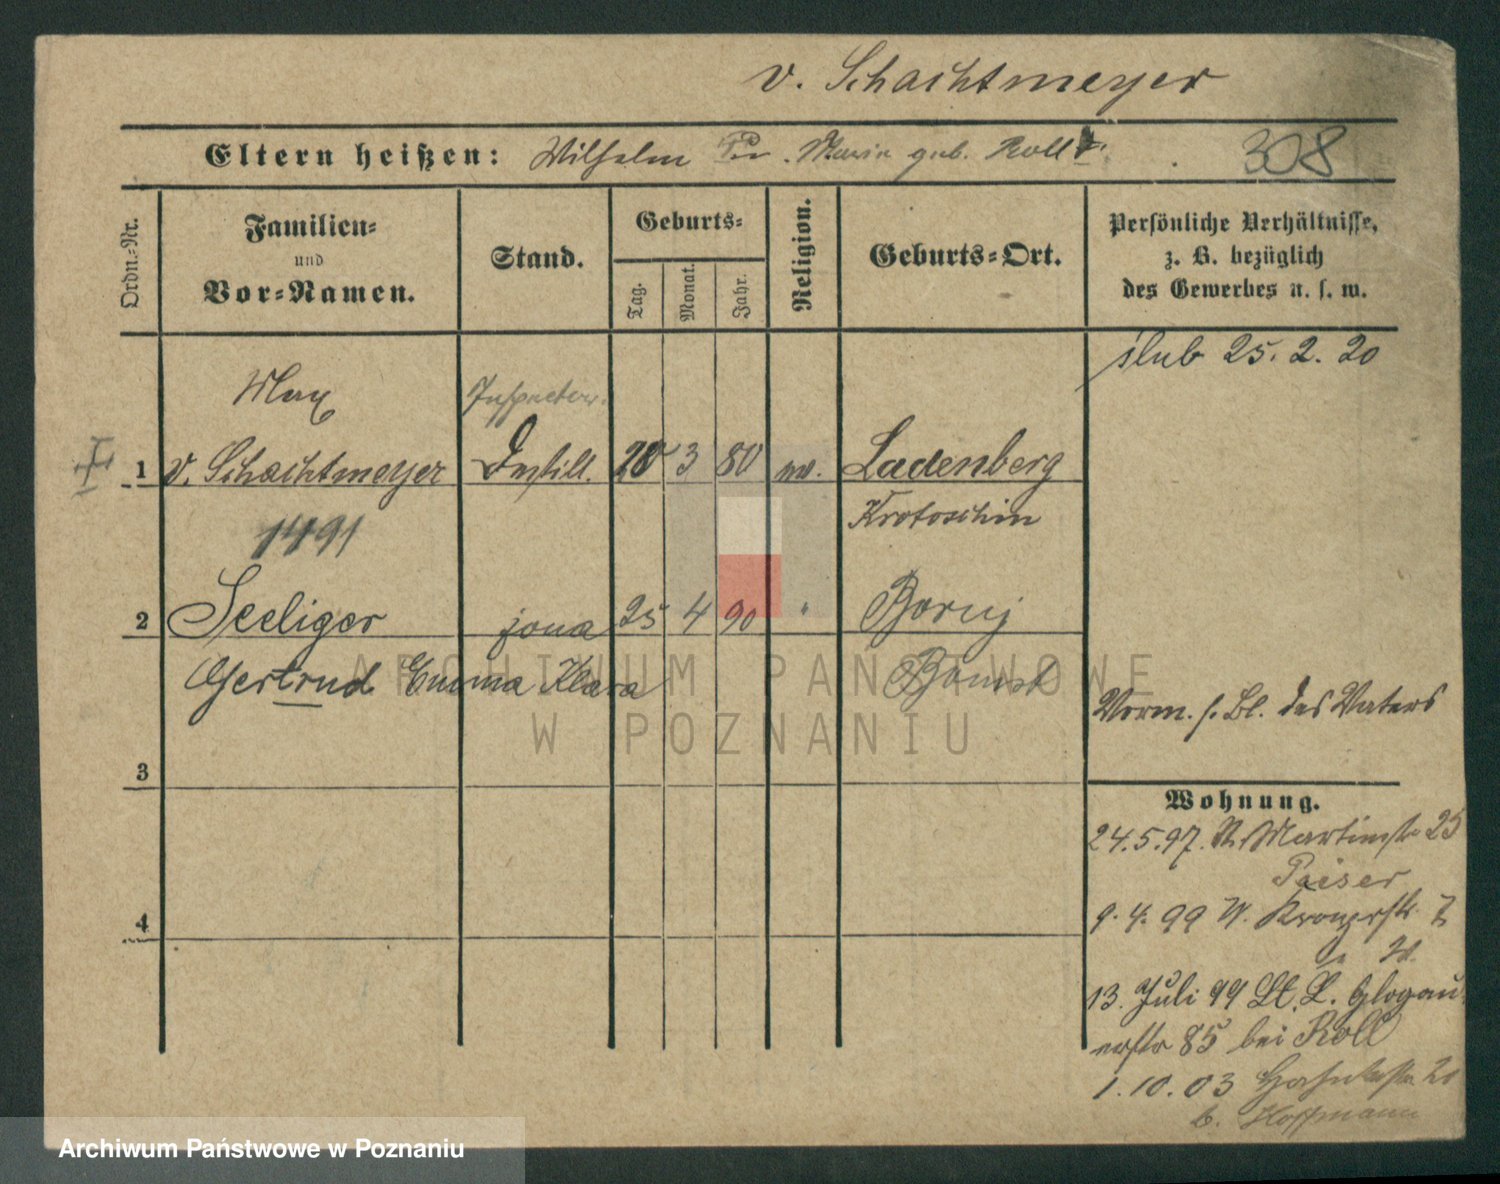 v. Schachtmeyer
Eltern heißen: Wilhelm Marie geb. Roll
308
Ordn.-Nr.
Familien-
und
Vor-Namen.
Stand.
Geburts-
Tag.
Monat.
Jahr.
Religion.
Geburts-Ort.
Persönliche Verhältnisse,
z. B. bezüglich
des Gewerbes u. s. w.
ślub 25. 2. 20
Max Inspector.
1 v. Schachtmeyer Destill. 20 3 80 ev. Ladenberg
1491 Krotoschin
2 Seeliger żona 25 4 90 " Boruj
Gertrud Emma Klara Bomst
Vorm. s. Bl. des Vaters
3
Wohnung.
24.5.97. St. Martinstr 25
Paiser
4
9. 4. 99 W.
13. Juli 99 St. L. Glogau
erstr 85 bei Roll
1. 10. 03 20
b. Hoffmann
ARCHIWUM PAŃSTWOWE
W POZNANIU
Archiwum Państwowe w Poznaniu